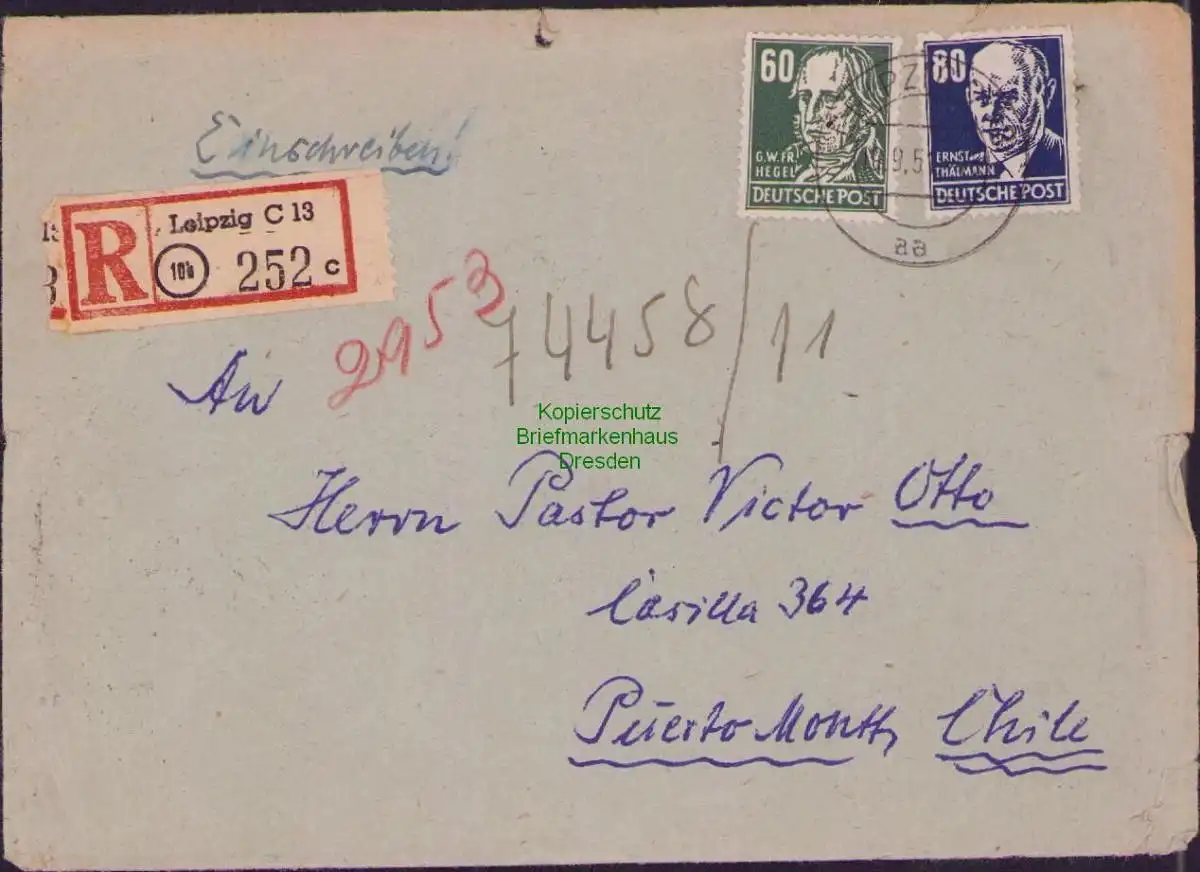 Einschreiben!
60
G.W.FR.
HEGEL
DEUTSCHE POST
80
ERNST
THÄLMANN
DEUTSCHE POST
aa
R
Leipzig C 13
10b
252 c
2953
74458/11
An
Kopierschutz
Briefmarkenhaus
Dresden
Herrn Pastor Victor Otto
Casilla 364
Puerto Montt, Chile